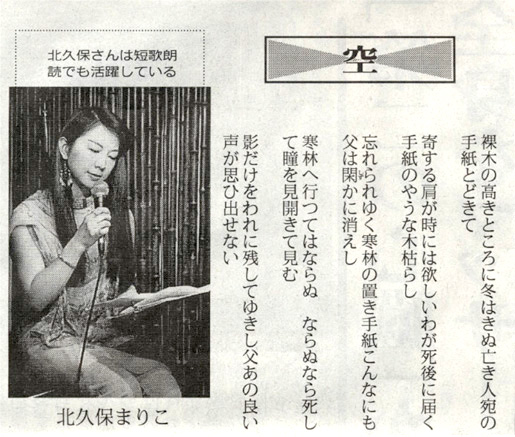 北久保さんは短歌朗
読でも活躍している
空
裸木の高きところに冬はきぬ亡き人宛の
手紙とどきて
寄する肩が時には欲しいわが死後に届く
手紙のやうな木枯らし
忘れられゆく寒林の置き手紙こんなにも
父は閑かに消えし
寒林へ行つてはならぬ　ならぬなら死し
て瞳を見開きて見む
影だけをわれに残してゆきし父あの良い
声が思ひ出せない
北久保まりこ